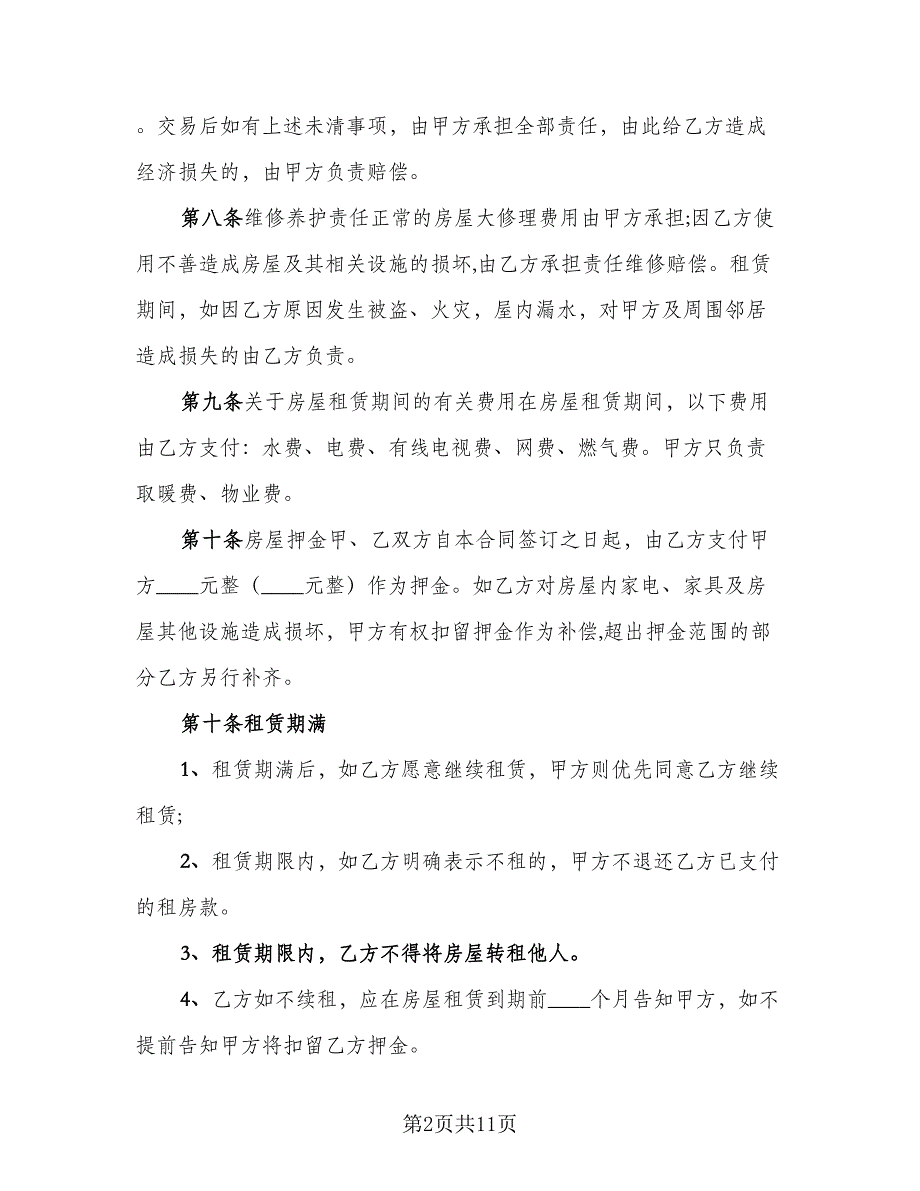 。交易后如有上述未清事项，由甲方承担全部责任，由此给乙方造成
经济损失的，由甲方负责赔偿。
第八条维修养护责任正常的房屋大修理费用由甲方承担;因乙方使
用不善造成房屋及其相关设施的损坏,由乙方承担责任维修赔偿。租赁
期间，如因乙方原因发生被盗、火灾，屋内漏水，对甲方及周围邻居
造成损失的由乙方负责。
第九条关于房屋租赁期间的有关费用在房屋租赁期间，以下费用
由乙方支付：水费、电费、有线电视费、网费、燃气费。甲方只负责
取暖费、物业费。
第十条房屋押金甲、乙双方自本合同签订之日起，由乙方支付甲
方____元整（____元整）作为押金。如乙方对房屋内家电、家具及房
屋其他设施造成损坏，甲方有权扣留押金作为补偿,超出押金范围的部
分乙方另行补齐。
第十条租赁期满
1、租赁期满后，如乙方愿意继续租赁，甲方则优先同意乙方继续
租赁;
2、租赁期限内，如乙方明确表示不租的，甲方不退还乙方已支付
的租房款。
3、租赁期限内，乙方不得将房屋转租他人。
4、乙方如不续租，应在房屋租赁到期前____个月告知甲方，如不
提前告知甲方将扣留乙方押金。
第2页共11页